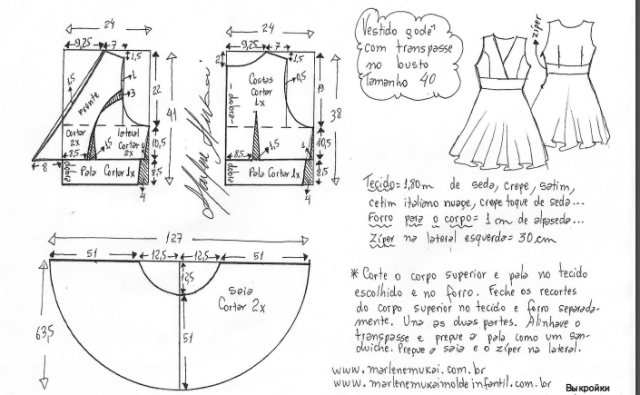 24
9,25 7
1,5
1
3
15
frente
22
41
Cortar 2x
lateral Cortar 2x
10,5
8,5
1,5
8
dobra
Pala Cortar 1x
8,5
4
Marlene Mukai
24
9,25 7
2
1,5
Costas
Cortar
1x
dobra
0,5
19
38
8,5
1,5
10,5
dobra
Pala Cortar 1x
8,5
4
Vestido godê
com transpasse
no busto
Tamanho 40
zíper
Tecido = 1,80m de seda, crepe, satim,
cetim italiano nuage, crepe toque de seda...
Forro para o corpo = 1 cm de alpaseda...
Zíper na lateral esquerda = 30 cm
127
51 12,5 12,5 51
12,5
saia
Cortar 2x
63,5
51
* Corte o corpo superior e pala no tecido
escolhido e no forro. Feche os recortes
do corpo superior no tecido e forro separada-
mente. Una as duas partes. Alinhave o
transpasse e pregue a pala como um san-
duiche. Pregue a saia e o zíper na lateral.
www.marlenemukai.com.br
www.marlenemukaimoldeinfantil.com.br
Выкройки